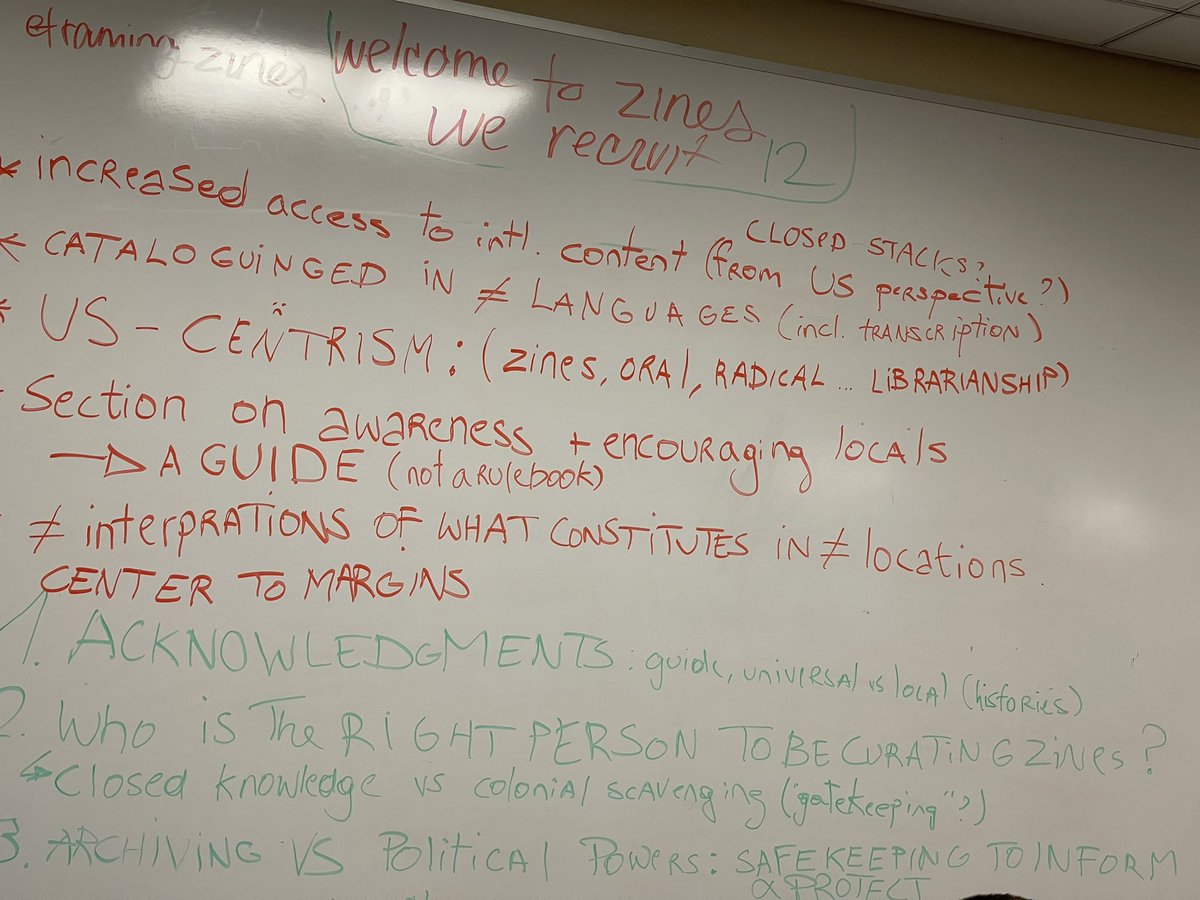 eframing zines.
welcome to zines
we recruit 12
* increased access to intl. content (from US perspective?)
CLOSED STACKS?
* CATALOGUINGED in ≠ LANGUAGES (incl. TRANSCRIPTION)
* US-CENTRISM: (zines, ORAL, RADICAL ... LIBRARIANSHIP)
Section on awareness + encouraging locals
→ A GUIDE (not a rulebook)
≠ interprations OF WHAT CONSTITUTES IN ≠ locations.
CENTER TO MARGINS
1. ACKNOWLEDGMENTS: guide, universal vs local (histories)
2. Who is The RIGHT PERSON TO BE CURATING Zines?
↳ Closed knowledge vs colonial scavenging ("gatekeeping"?)
3. ARCHIVING VS Political Powers: SAFEKEEPING TO INFORM
& PROTECT